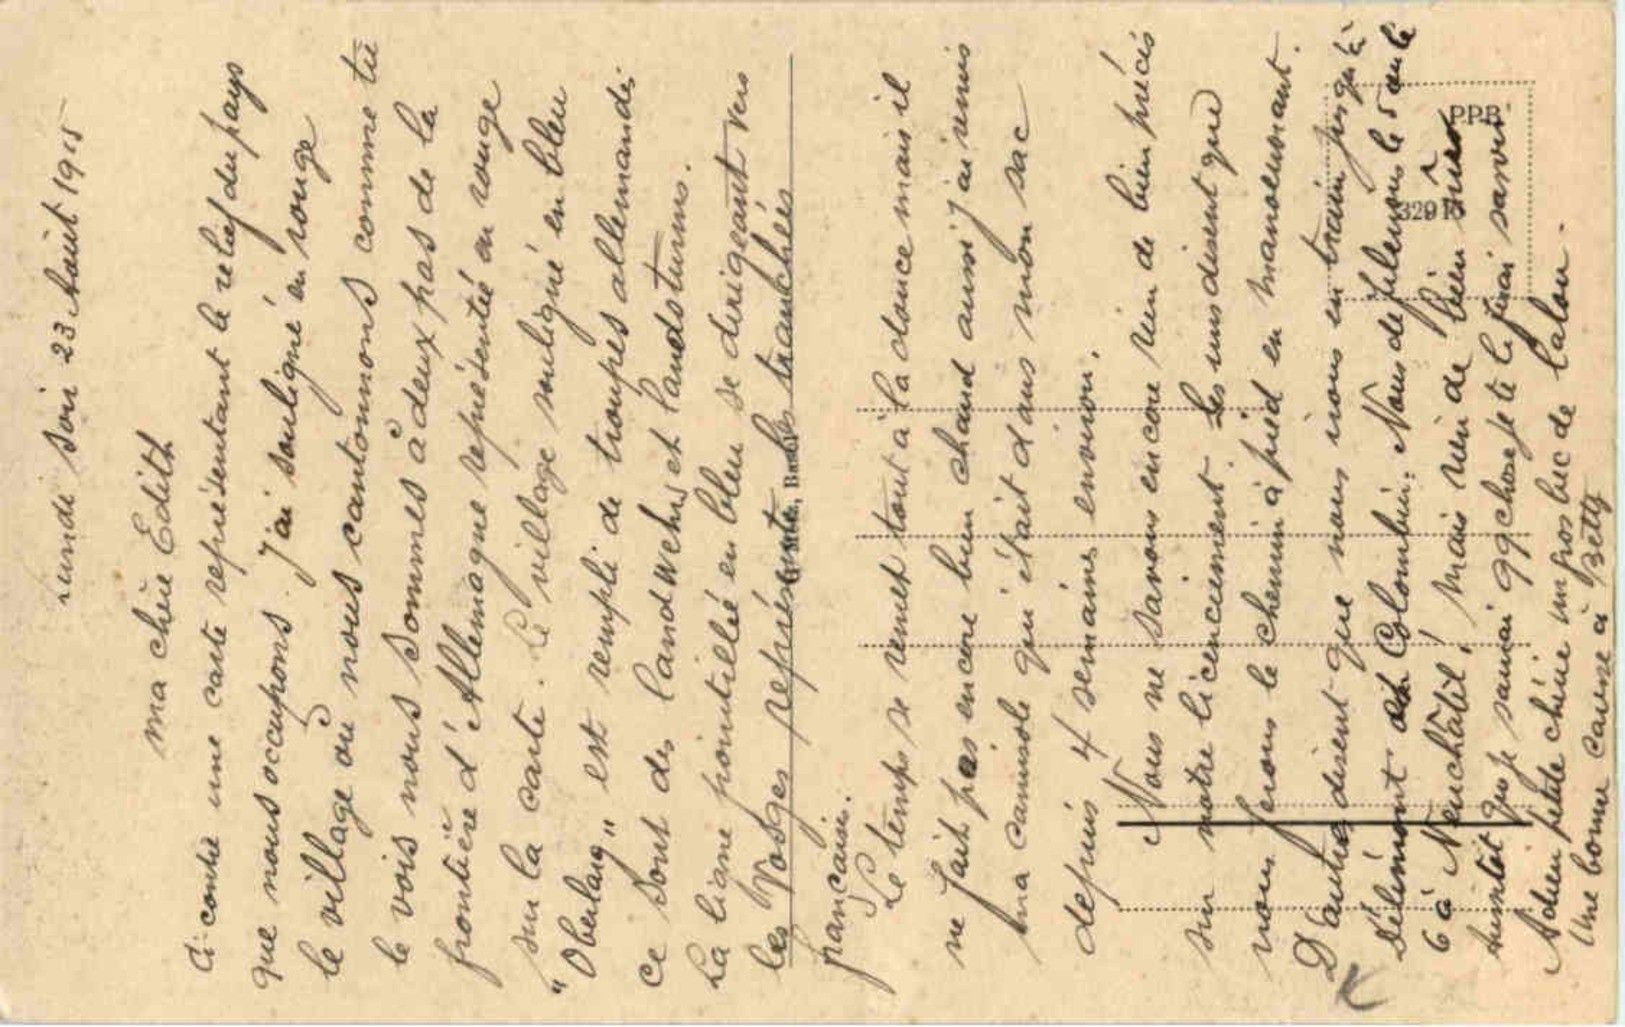 Lundi soir 23 Août 1915
Ma chère Edith
Ci contre une carte représentant le relief du pays
que nous occupons. J'ai souligné en rouge
le village où nous cantonnons comme tu
le vois nous sommes à deux pas de la
frontière d'Allemagne représentée en rouge
sur la carte. Le village souligné en bleu
"Oberlarg" est rempli de troupes allemandes
ce sont des landwehrs et landsturms.
La ligne pointillée en bleu se dirigeant vers
les Vosges représente les tranchées
françaises.
Le temps se remet tout à la douce mais il
ne fait pas encore bien chaud aussi j'ai remis
ma camisole qui était dans mon sac
depuis 4 semaines environ.
Nous ne savons encore rien de bien précis
sur notre licenciement. Les uns disent que
nous ferons le chemin à pied en manoeuvrant.
D'autres disent que nous irons en train jusqu'à
Delémont ou Colombier. Nous défilerons le 5 ou le
6 à Neuchâtel, mais rien de bien sûr
Aussitôt que je saurai qq chose je te le ferai savoir
Adieu petite chérie un gros bec de
Une bonne caresse à Betty
PPB
3291